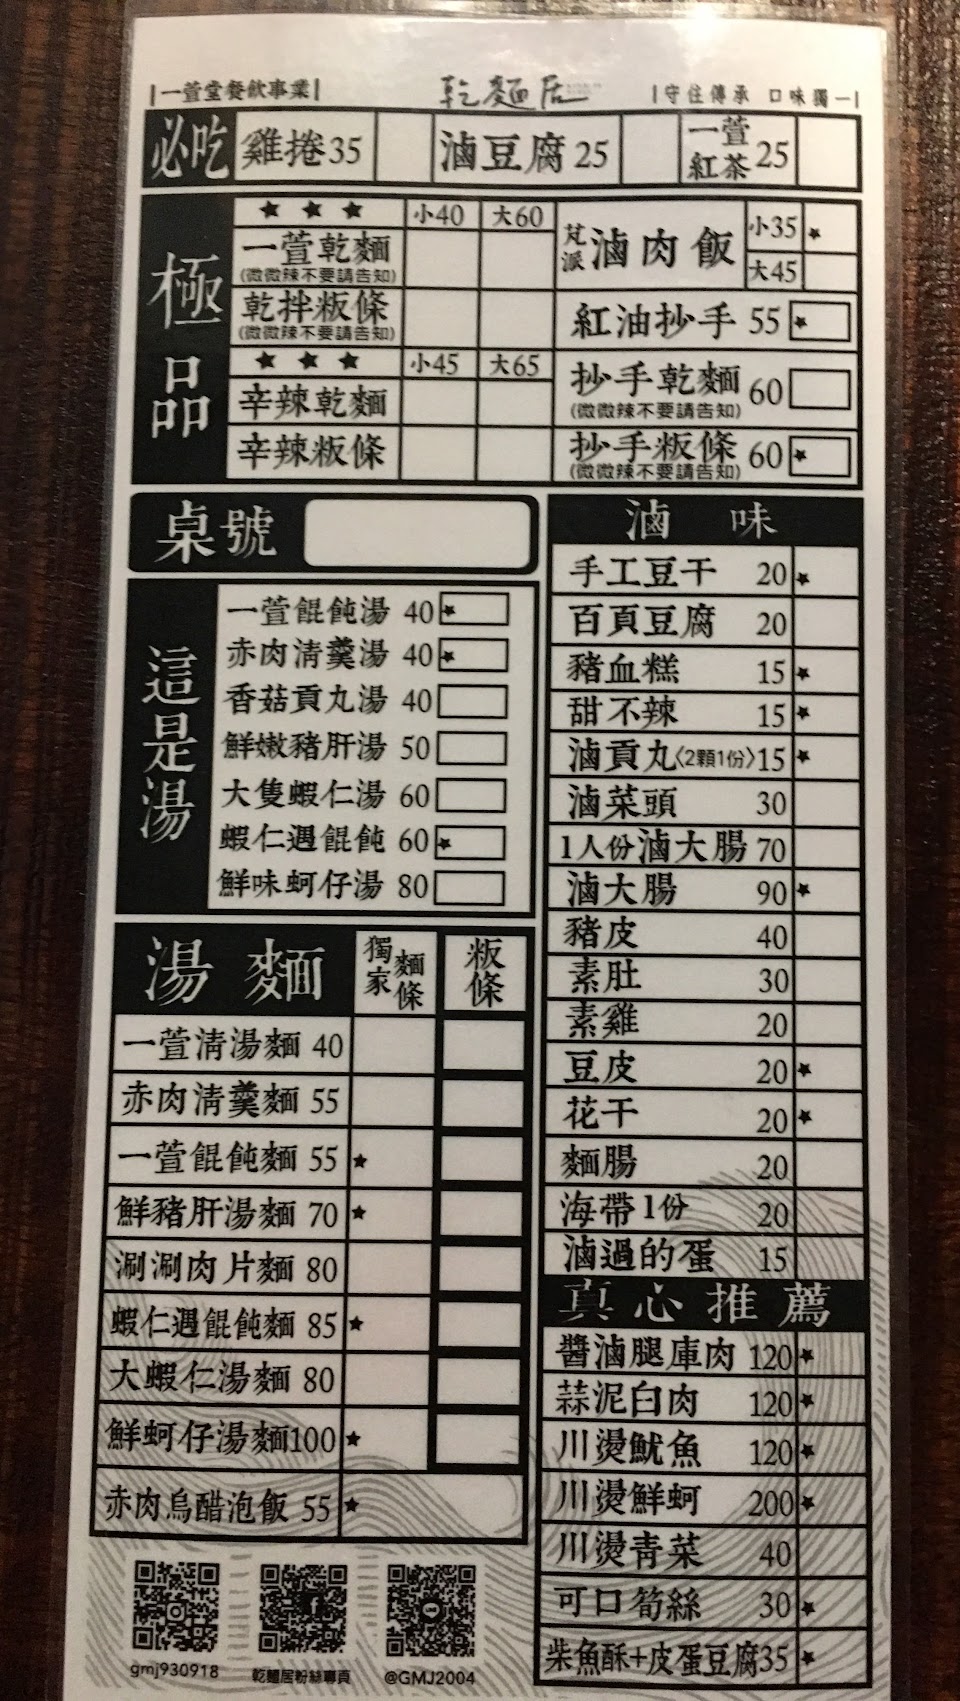 |一萱堂餐飲事業|
乾麵居
|守住傳承 口味獨一|
必吃 雞捲35 滷豆腐25 一萱紅茶25
極品
★ ★ ★ 小40 大60
一萱乾麵
(微微辣不要請告知)
乾拌粄條
(微微辣不要請告知)
★ ★ ★ 小45 大65
辛辣乾麵
辛辣粄條
芃派 滷肉飯 小35 ★
大45
紅油抄手 55 ★
抄手乾麵 60
(微微辣不要請告知)
抄手粄條 60 ★
(微微辣不要請告知)
桌號
這是湯
一萱餛飩湯 40 ★
赤肉清羹湯 40 ★
香菇貢丸湯 40
鮮嫩豬肝湯 50
大隻蝦仁湯 60
蝦仁遇餛飩 60 ★
鮮味蚵仔湯 80
湯麵 獨家麵條 粄條
一萱清湯麵 40
赤肉清羹麵 55
一萱餛飩麵 55 ★
鮮豬肝湯麵 70 ★
涮涮肉片麵 80
蝦仁遇餛飩麵 85 ★
大蝦仁湯麵 80
鮮蚵仔湯麵100 ★
赤肉烏醋泡飯 55 ★
滷味
手工豆干 20 ★
百頁豆腐 20
豬血糕 15 ★
甜不辣 15 ★
滷貢丸〈2顆1份〉15 ★
滷菜頭 30
1人份滷大腸 70
滷大腸 90 ★
豬皮 40
素肚 30
素雞 20
豆皮 20 ★
花干 20 ★
麵腸 20
海帶1份 20
滷過的蛋 15
真心推薦
醬滷腿庫肉 120 ★
蒜泥白肉 120 ★
川燙魷魚 120 ★
川燙鮮蚵 200 ★
川燙青菜 40
可口筍絲 30 ★
柴魚酥+皮蛋豆腐35 ★
gmj930918
乾麵居粉絲專頁
@GMJ2004